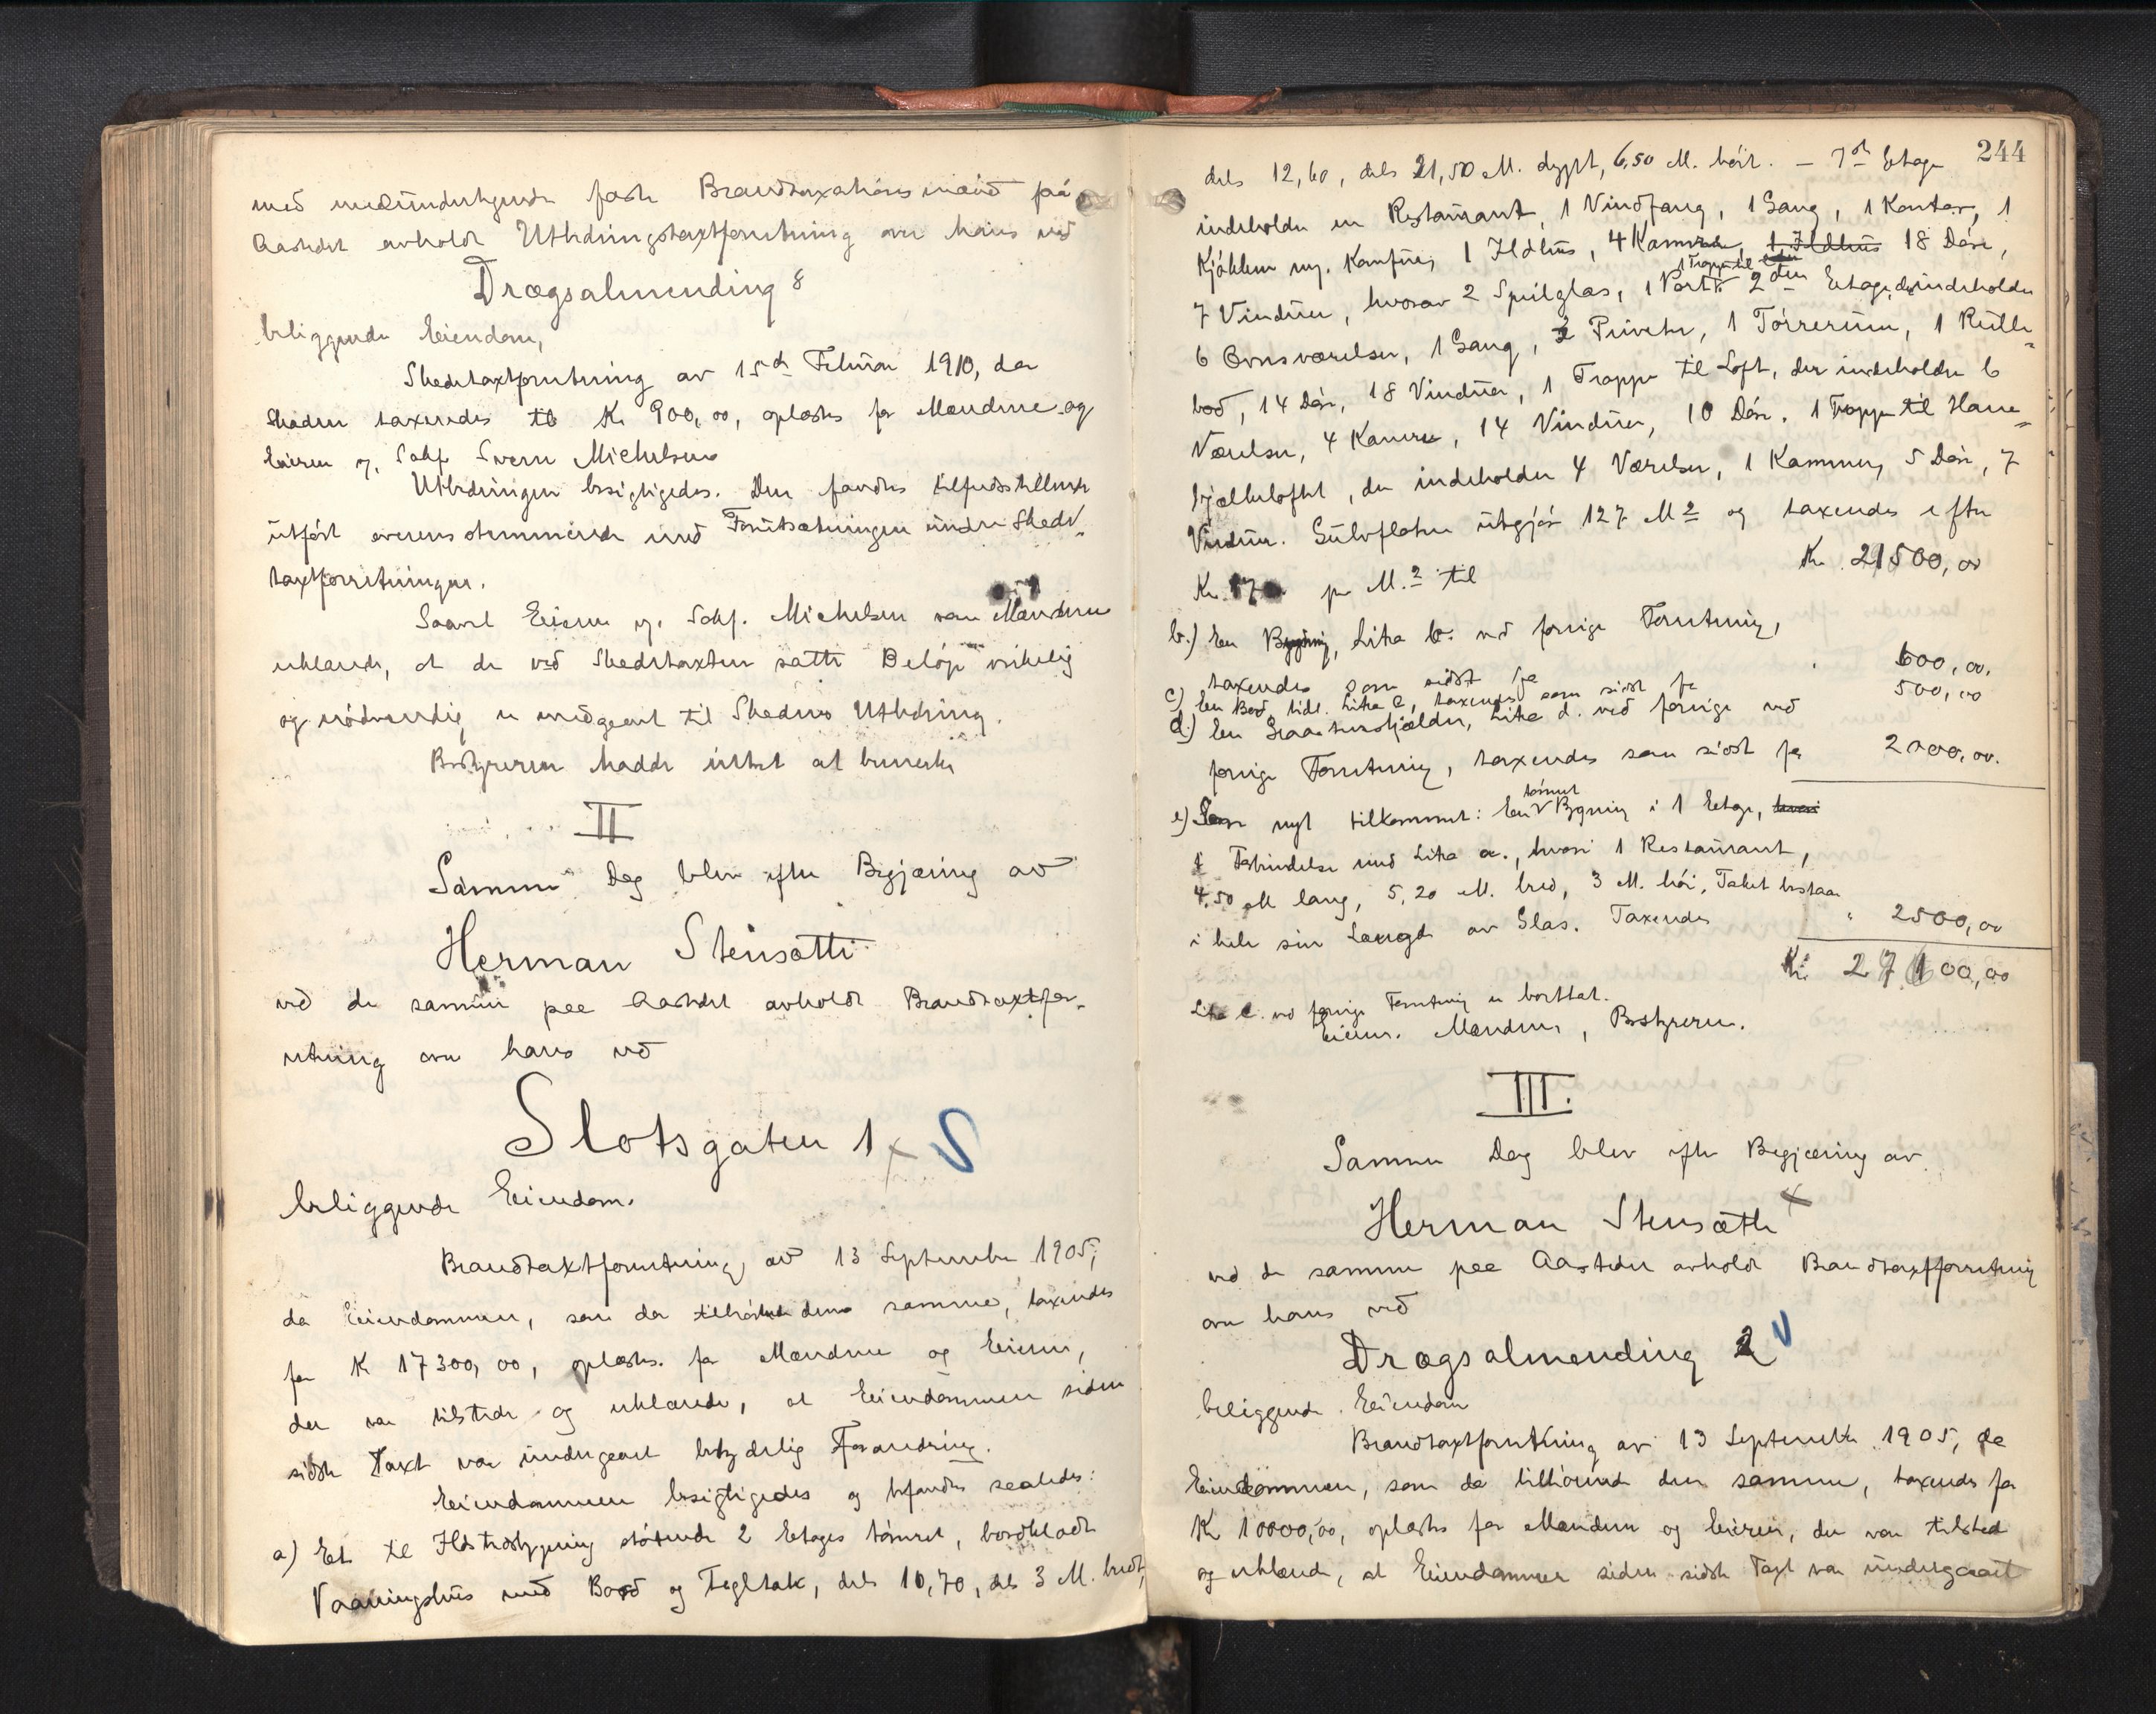 med medundertegnede faste Brandtaxationsmænd på
Aastedet avholdt Utbedringstaxtforretning over hans ved
Drægsalmending 8
beliggende Eiendom,
Skadetaxtforretning av 15de Februar 1910, da
Skaden taxeredes til Kr 900,00, oplæstes for Mændene og
Eieren
Michelsen
Utbedringen besigtigedes. Den fandtes tilfredsstillende
utført overensstemmende med Forutsætningen under Skade-
taxtforretningen.
Saavel Eieren
Michelsen som Mændene
erklærede, at de ved Skadetaxten satte Beløp virkelig
og nødvendig er medgaaet til Skadens Utbedring.
Bestyreren hadde intet at bemerke
II
Samme Dag blev efter Begjæring av
Herman Stensætte
ved de samme paa Aastedet avholdt Brandtaxtfor-
retning over hans ved
Slotsgaten 1
beliggende Eiendom.
Brandtaxtforretning av 13 September 1905,
da Eiendommen, som da tilhørte den samme, taxeredes
for K 17300,00, oplæstes for Mændene og Eieren,
der var tilstede og erklærede, at Eiendommen siden
sidste Taxt var undergaaet betydelig Forandring.
Eiendommen besigtigedes og befandtes saaledes:
a) Et til Ildstedsbygning stötende 2 Etages tømret, bordklædt
Vaaningshus med Bord og Tegltak, dels 10,70, dels 3 M. bredt,
244
dels 12,60, dels 21,50 M. dypt, 6,50 M. høit. — 1ste Etage
indeholder en Restaurant, 1 Vindfang, 1 Gang, 1 Kontor, 1
Kjøkken m. Komfur, 1 Ildhus, 4 Kammere, 1 Ildhus 18 Døre,
1 Trappe til
7 Vinduer, hvorav 2 Speilglas, 1 Port. 2den Etage, der indeholder
6 Ovnsværelser, 1 Gang, 2 Priveter, 1 Tørrerum, 1 Rulle-
bod, 14 Døre, 18 Vinduer, 1 Trappe til Loft, der indeholder 6
Værelser, 4 Kamre, 14 Vinduer, 10 Døre. 1 Trappe til Hane-
bjælkeloftet, der indeholder 4 Værelser, 1 Kammer, 5 Døre, 7
Vinduer. Gulvflaten utgjør 127 M2 og taxeredes efter
Kr. 170 pr M.2 til Kr. 21500,00
b.) En Bygning, Litra b. ved forrige Forretning,
taxeredes som sidst for 600,00.
c) En Bod, tidl. Litra C, taxeredes som sidst for 500,00
d.) En Graastenskjælder, Litra d. ved forrige ved
forrige Forretning, taxeredes som sidst for 2000,00.
tømret
e) Som nyt tilkommet: En Bygning i 1 Etage, hvori
i Forbindelse med Litra a., hvori 1 Restaurant,
4,50 M lang, 5,20 M. bred, 3 M. høi, Taket bestaar
i hele sin Længde av Glas. Taxeredes " 2500,00
Kr. 27100,00
Litra e. ved forrige Forretning er borttat.
Eieren. Mændene, Bestyreren.
III.
Samme Dag blev efter Begjæring av
Herman Stensætte
ved de samme paa Aastedet avholdt Brandtaxtforretning
over hans ved
Drægsalmending 2
beliggende Eiendom
Brandtaxtforretning av 13 September 1905, da
Eiendommen, som da tilhørende den samme, taxeredes for
Kr 10000,00, oplæstes for Mændene og Eieren, der var tilsted
og erklærede, at Eiendommen siden sidste Taxt var undergaaet